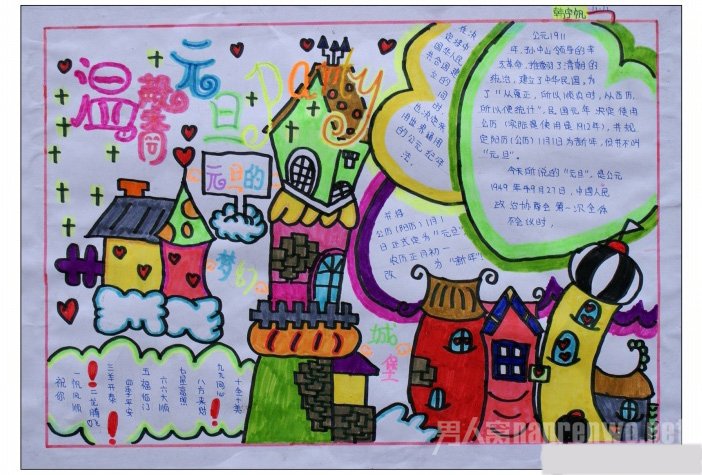 韩宇帆
温馨
元旦Party
元旦的
梦幻
城堡
公元1911
年,孙中山领导的辛
亥革命,推翻了清朝的
统治,建立了中华民国。为
了"从夏正,所以顺农时,从西历,
所以便统计",民国元年决定使用
公历(实际是使用是1912年),并规
定阳历(公历)1月1日为新年,但并不叫
"元旦"。
今天所说的"元旦",是公元
1949年9月27日,中国人民
政治协商会
第一次全体
会议时,
在决
共合国建
立的
同时
也决定采
用世界通用
的公元纪年
法.
并将
公历(阳历)1月1
日正式定为"元旦"
农历正月初一
改为"新年"
祝你
一帆风顺
二龙腾飞
三羊开泰
四季平安
五福临门
六六大顺
七星高照
八方来财
九九同心
十全十美
男人窝nanrenwo.net